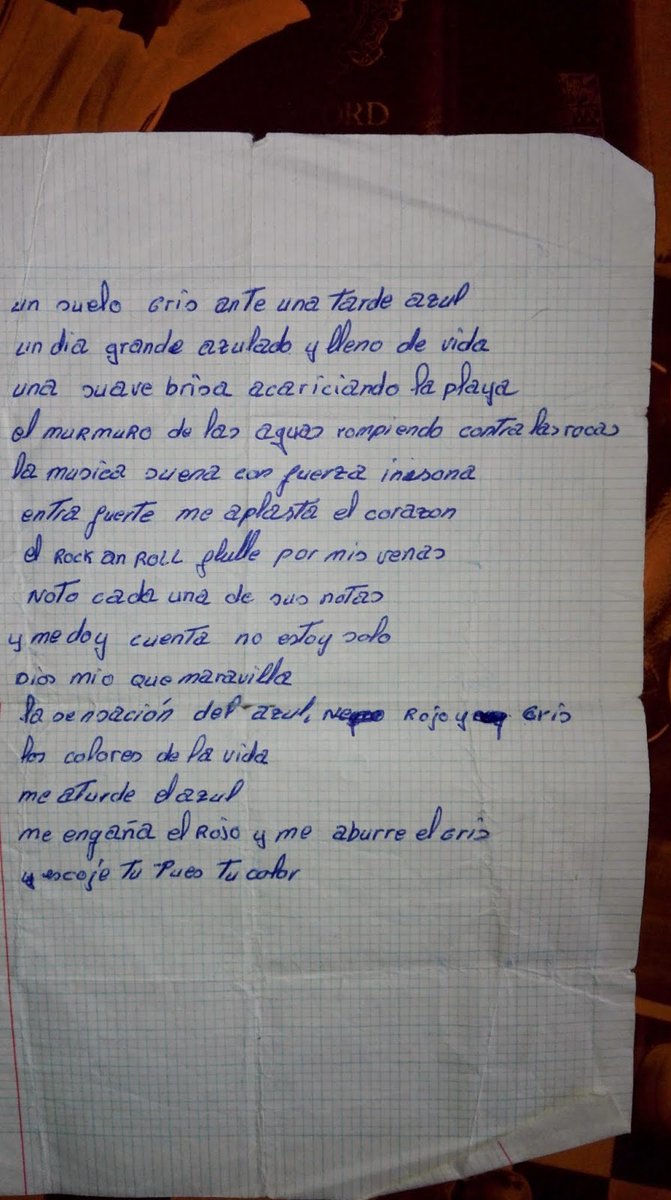 ORD
un suelo Gris ante una tarde azul
un dia grande azulado y lleno de vida
una suave brisa acariciando la playa
el murmuro de las aguas rompiendo contra las rocas
la musica suena con fuerza inesona
entra fuerte me aplasta el corazon
el Rock an Roll flulle por mis venas
Noto cada una de sus notas
y me doy cuenta no estoy solo
Dios mio que maravilla
la sensación del azul, Rojo y Gris
los colores de la vida
me aturde el azul
me engaña el Rojo y me aburre el Gris
y escoje Tu Pues Tu color